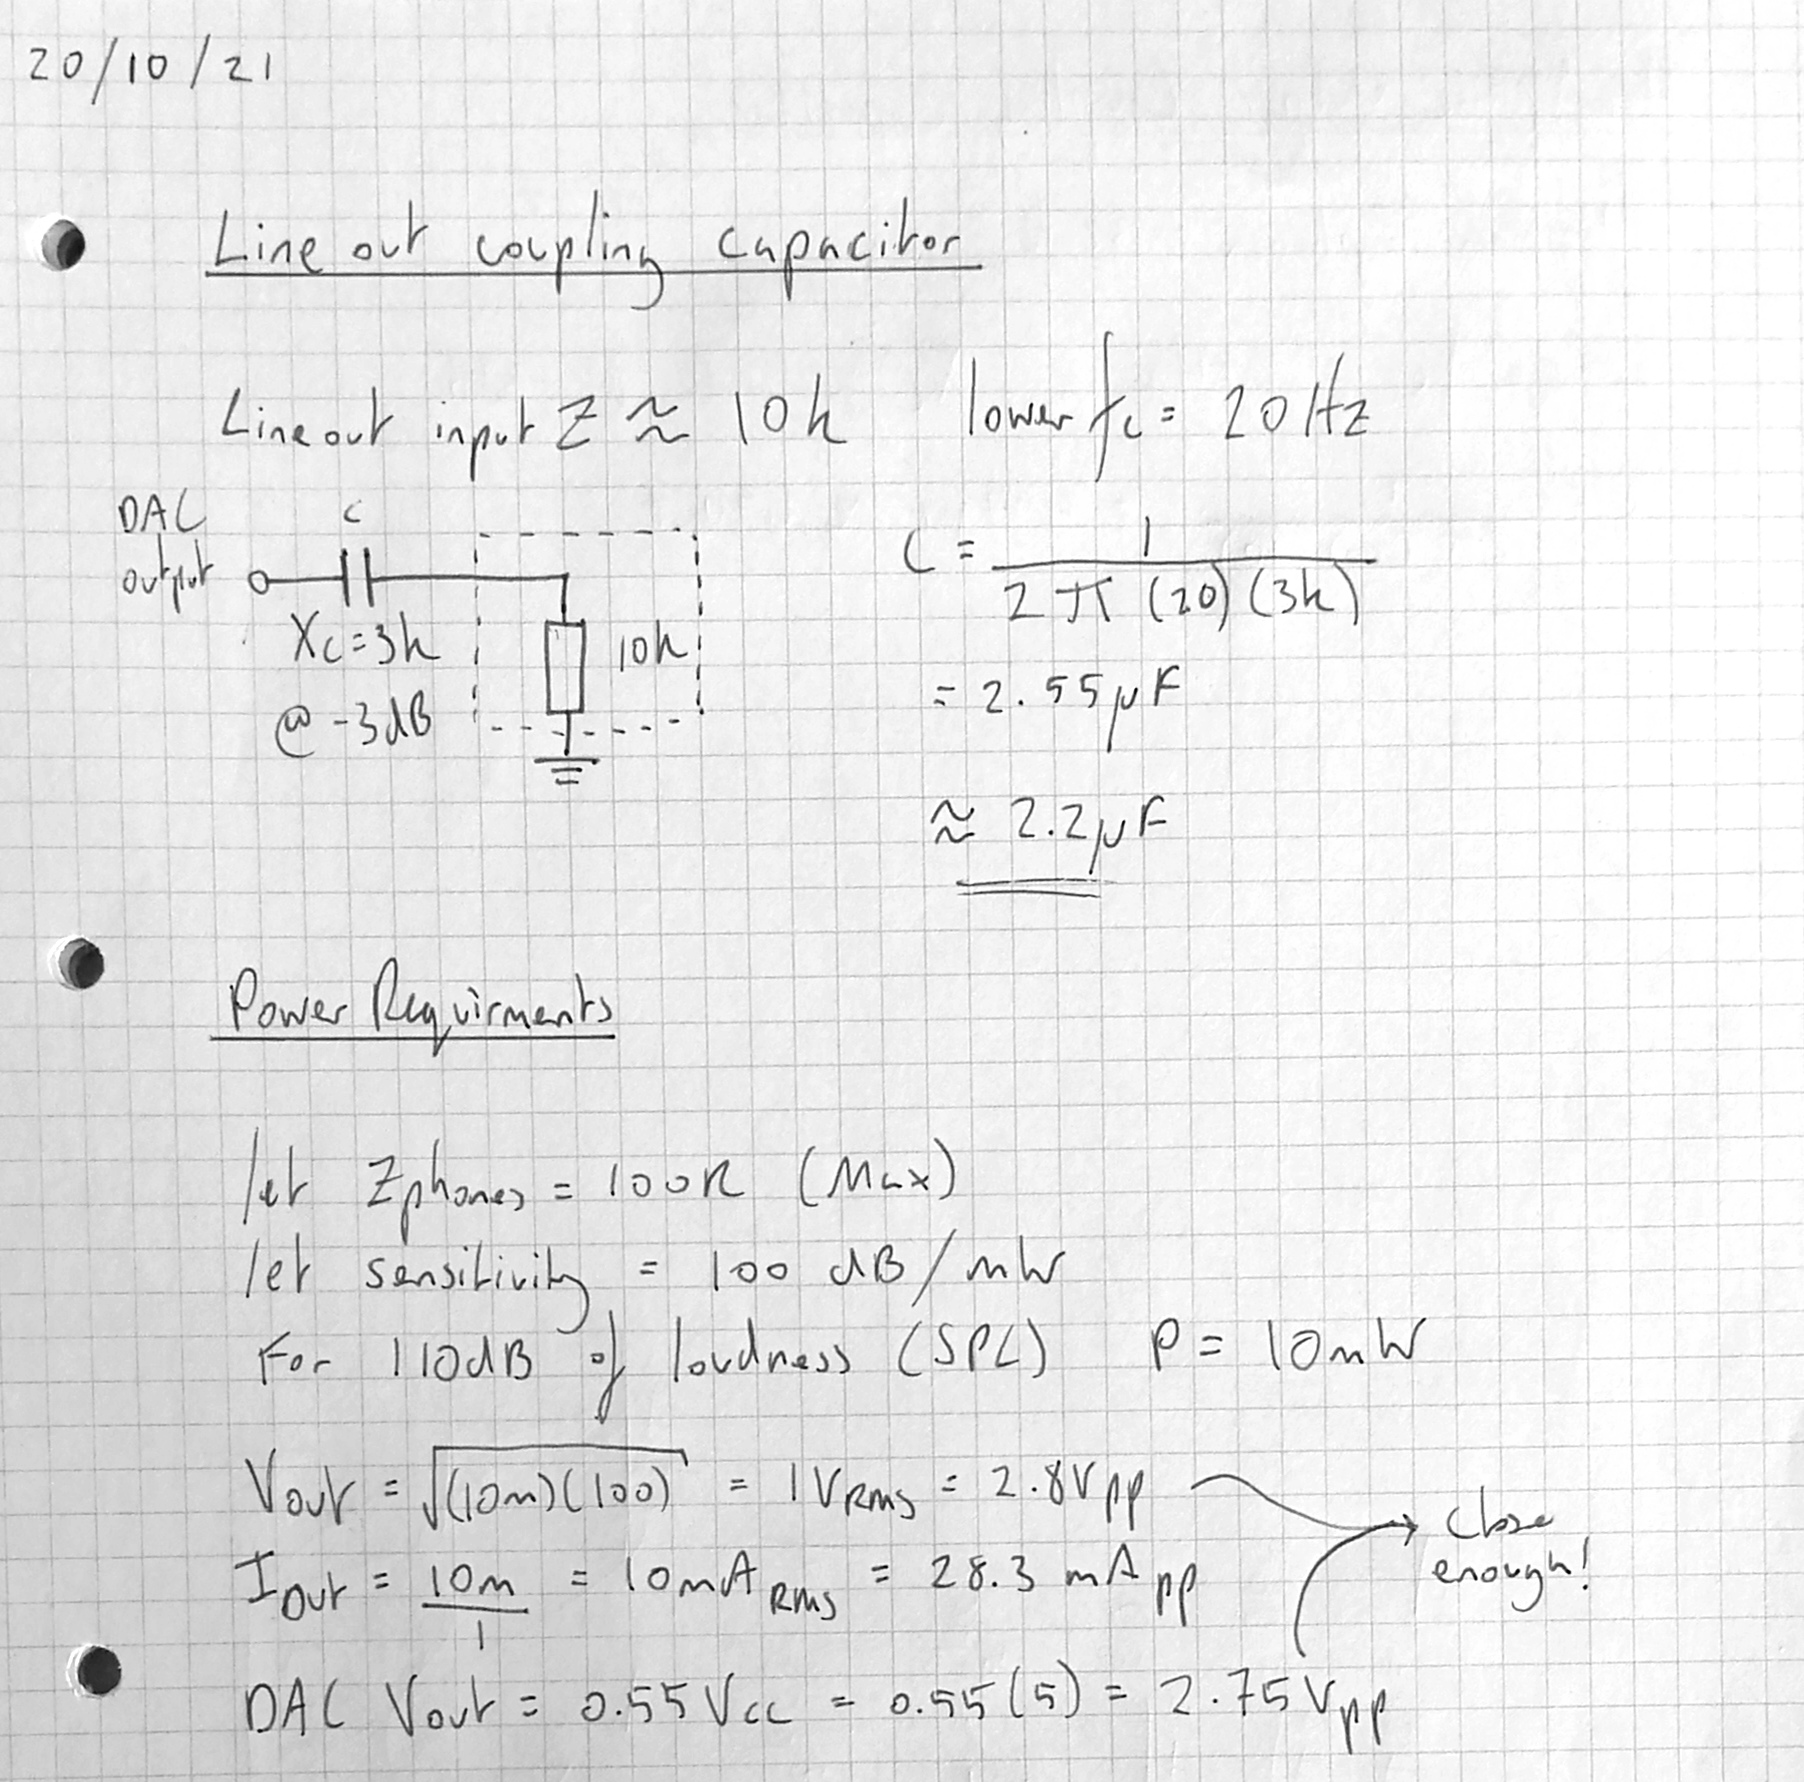 20/10/21
Line out coupling capacitor
Line out input Z ≈ 10k lower fc = 20Hz
DAC
output
C
Xc=3k
@ -3dB
10k
C = 1 / 2π (20) (3k)
= 2.55µF
≈ 2.2µF
Power Requirments
let Zphones = 100R (Max)
let sensitivity = 100 dB/mW
For 110dB of loudness (SPL) P = 10mW
Vout = √(10m)(100) = 1VRMS = 2.8Vpp
Close
enough!
Iout = 10m / 1 = 10mA RMS = 28.3 mA pp
DAC Vout = 0.55Vcc = 0.55(5) = 2.75Vpp